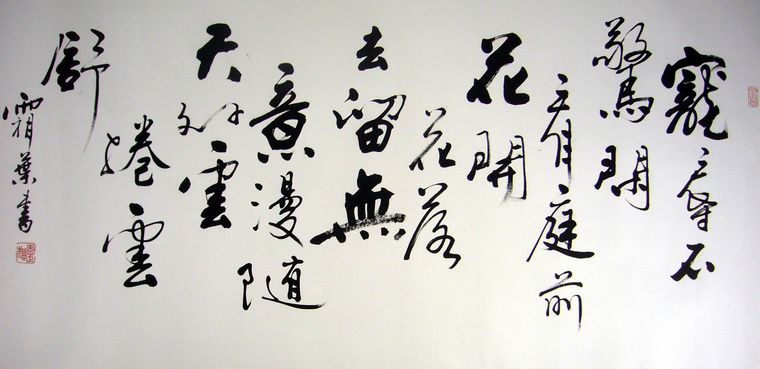 寵辱不
驚閒
看庭前
花開
花落
去留無
意漫隨
天外雲
捲雲
舒
霜葉書